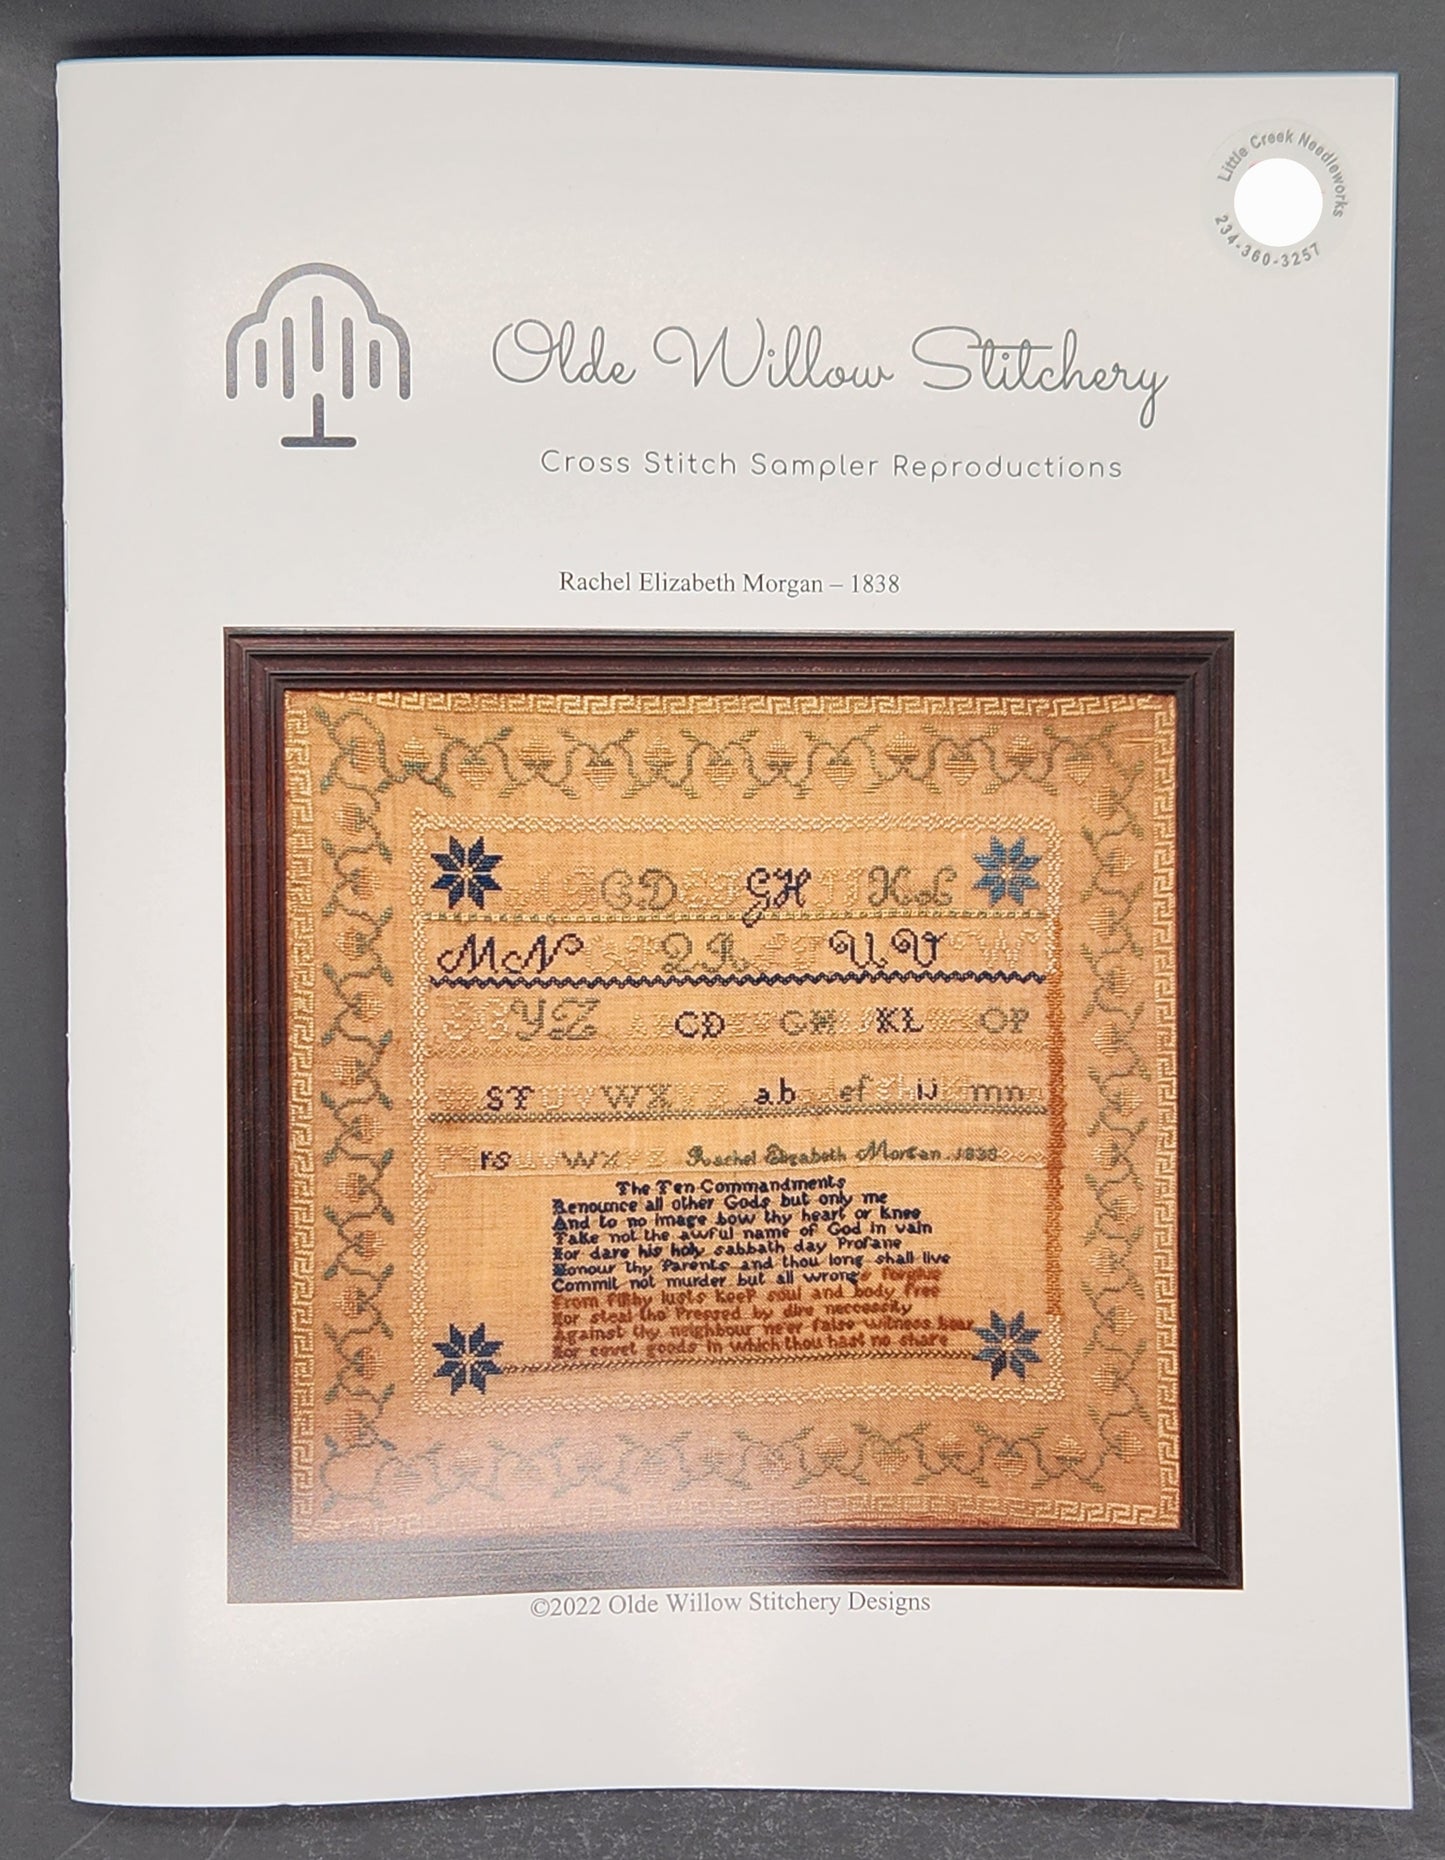 Little Creek Needleworks
234-360-3257
Olde Willow Stitchery
Cross Stitch Sampler Reproductions
Rachel Elizabeth Morgan – 1838
C D G H K L
M N Q R U V W
Y Z C D G H K L O P
S T U V W X a b e f h i j m n
r s u v w x y z Rachel Elizabeth Morgan 1838
The Ten Commandments
Renounce all other Gods but only me
And to no image bow thy heart or knee
Take not the awful name of God in vain
Nor dare his holy sabbath day Profane
Honour thy Parents and thou long shall live
Commit not murder but all wrongs forgive
From filthy lusts keep soul and body free
Nor steal tho' Pressed by dire neccessity
Against thy neighbour ne'er false witness bear
Nor covet goods in which thou hast no share
©2022 Olde Willow Stitchery Designs